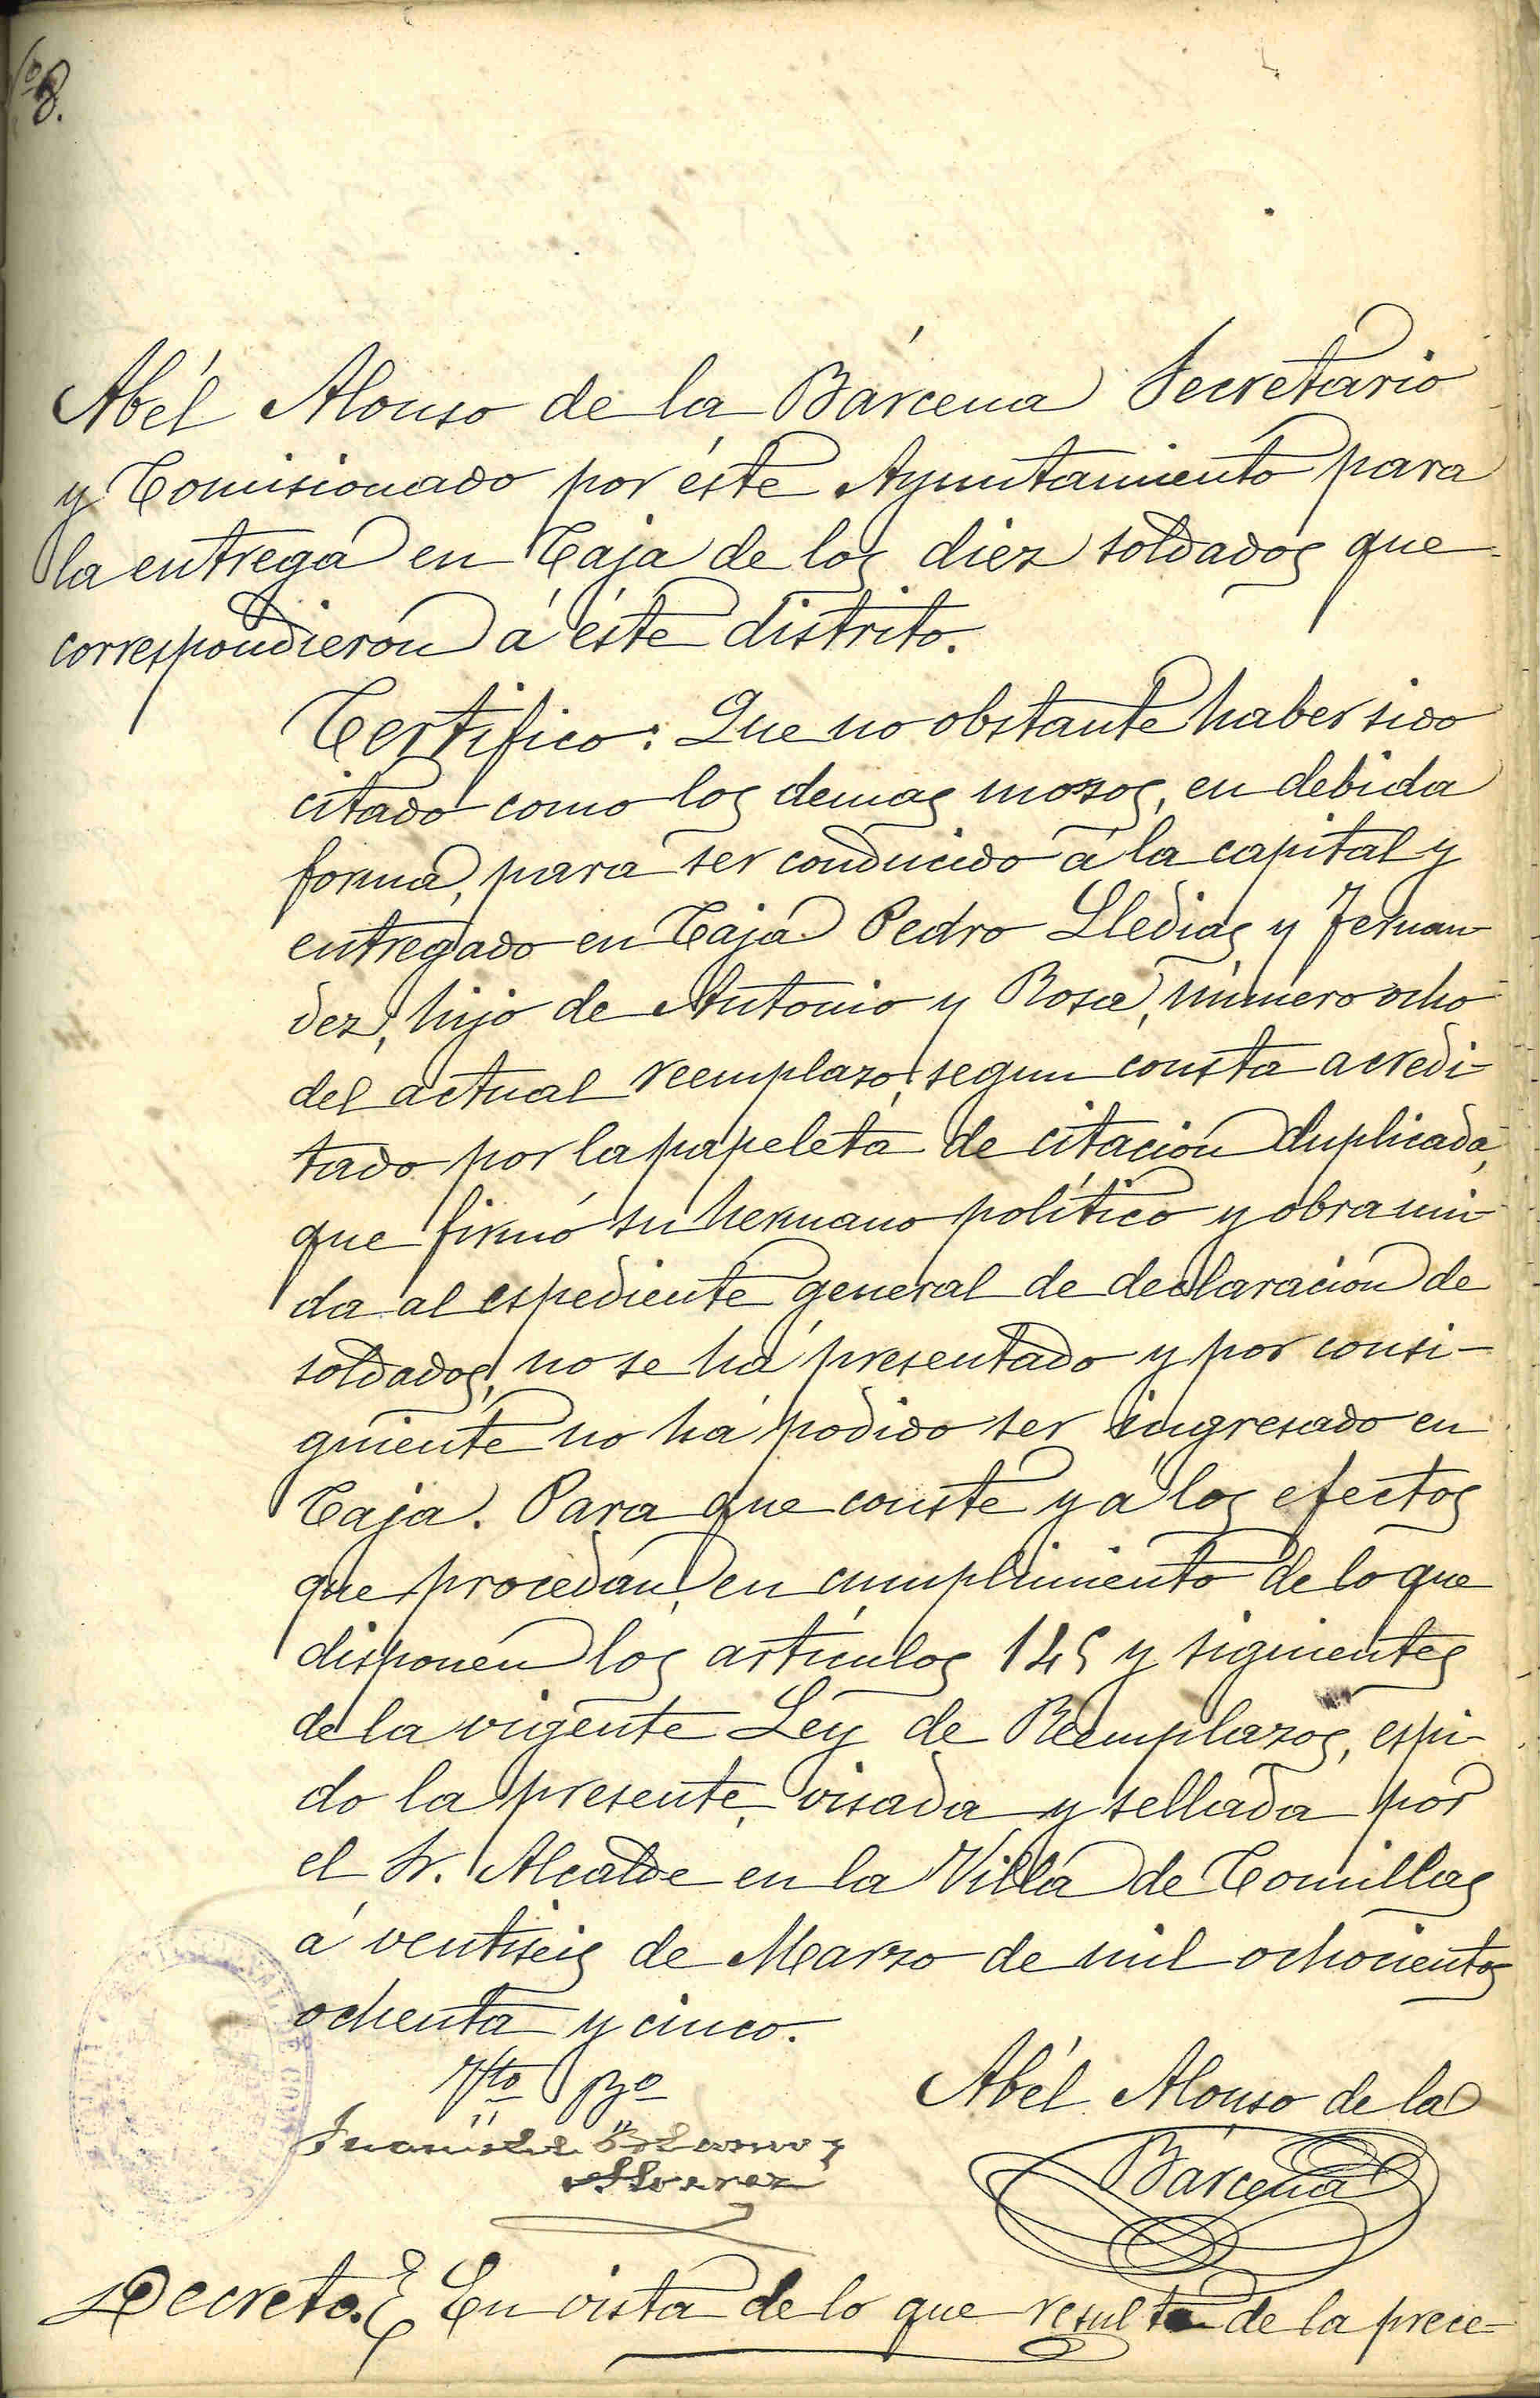 8.
Abél Alonso de la Bárcena Secretario
y Comisionado por éste Ayuntamiento para
la entrega en Caja de los diez soldados que
correspondieron á éste distrito.
Certifico: Que no obstante haber sido
citado como los demas mozos, en debida
forma, para ser conducido á la capital y
entregado en Caja Pedro Lledias y Fernan-
dez, hijo de Antonio y Rosa, número ocho
del actual reemplazo, segun consta acredi-
tado por la papeleta de citacion duplicada,
que firmó su hermano político y obra uni-
da al espediente general de declaracion de
soldados, no se há presentado y por consi-
guiente no há podido ser ingresado en
Caja. Para que conste y á los efectos
que procedan, en cumplimiento de lo que
disponen los artículos 145 y siguientes
de la vigente Ley de Reemplazos, espi-
do la presente, visada y sellada por
el Sr. Alcalde en la Villa de Comillas
á ventiseis de Marzo de mil ochocientos
ochenta y cinco.
Vto Bo
Abél Alonso de la
Bárcena
Decreto. En vista de lo que resulta de la prece-